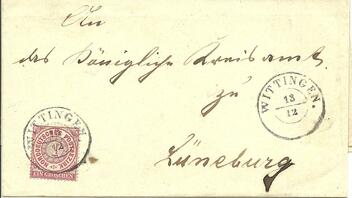 An
das Königliche Kreisamt
zu
Lüneburg
WITTINGEN.
13
12
WITTINGEN
12
NORDDEUTSCHER POSTBEZIRK
EIN GROSCHEN